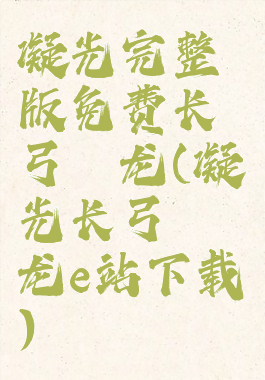 凝光完整
版免费长
弓 龙(凝
光长弓
龙e站下载
)